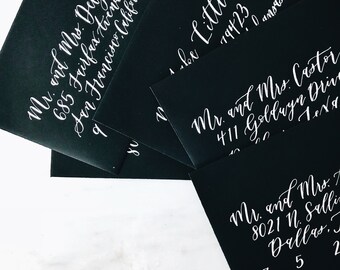 Mr. and Mrs. Da
685 Fairfax Aveno
San Francisco, Califor
9
Luke Littl
74423
Mr. and Mrs. Castor
411 Goldwyn Driv
Texas
Mr. and Mrs.
8021 N. Salli
Dallas, T
7 5 2